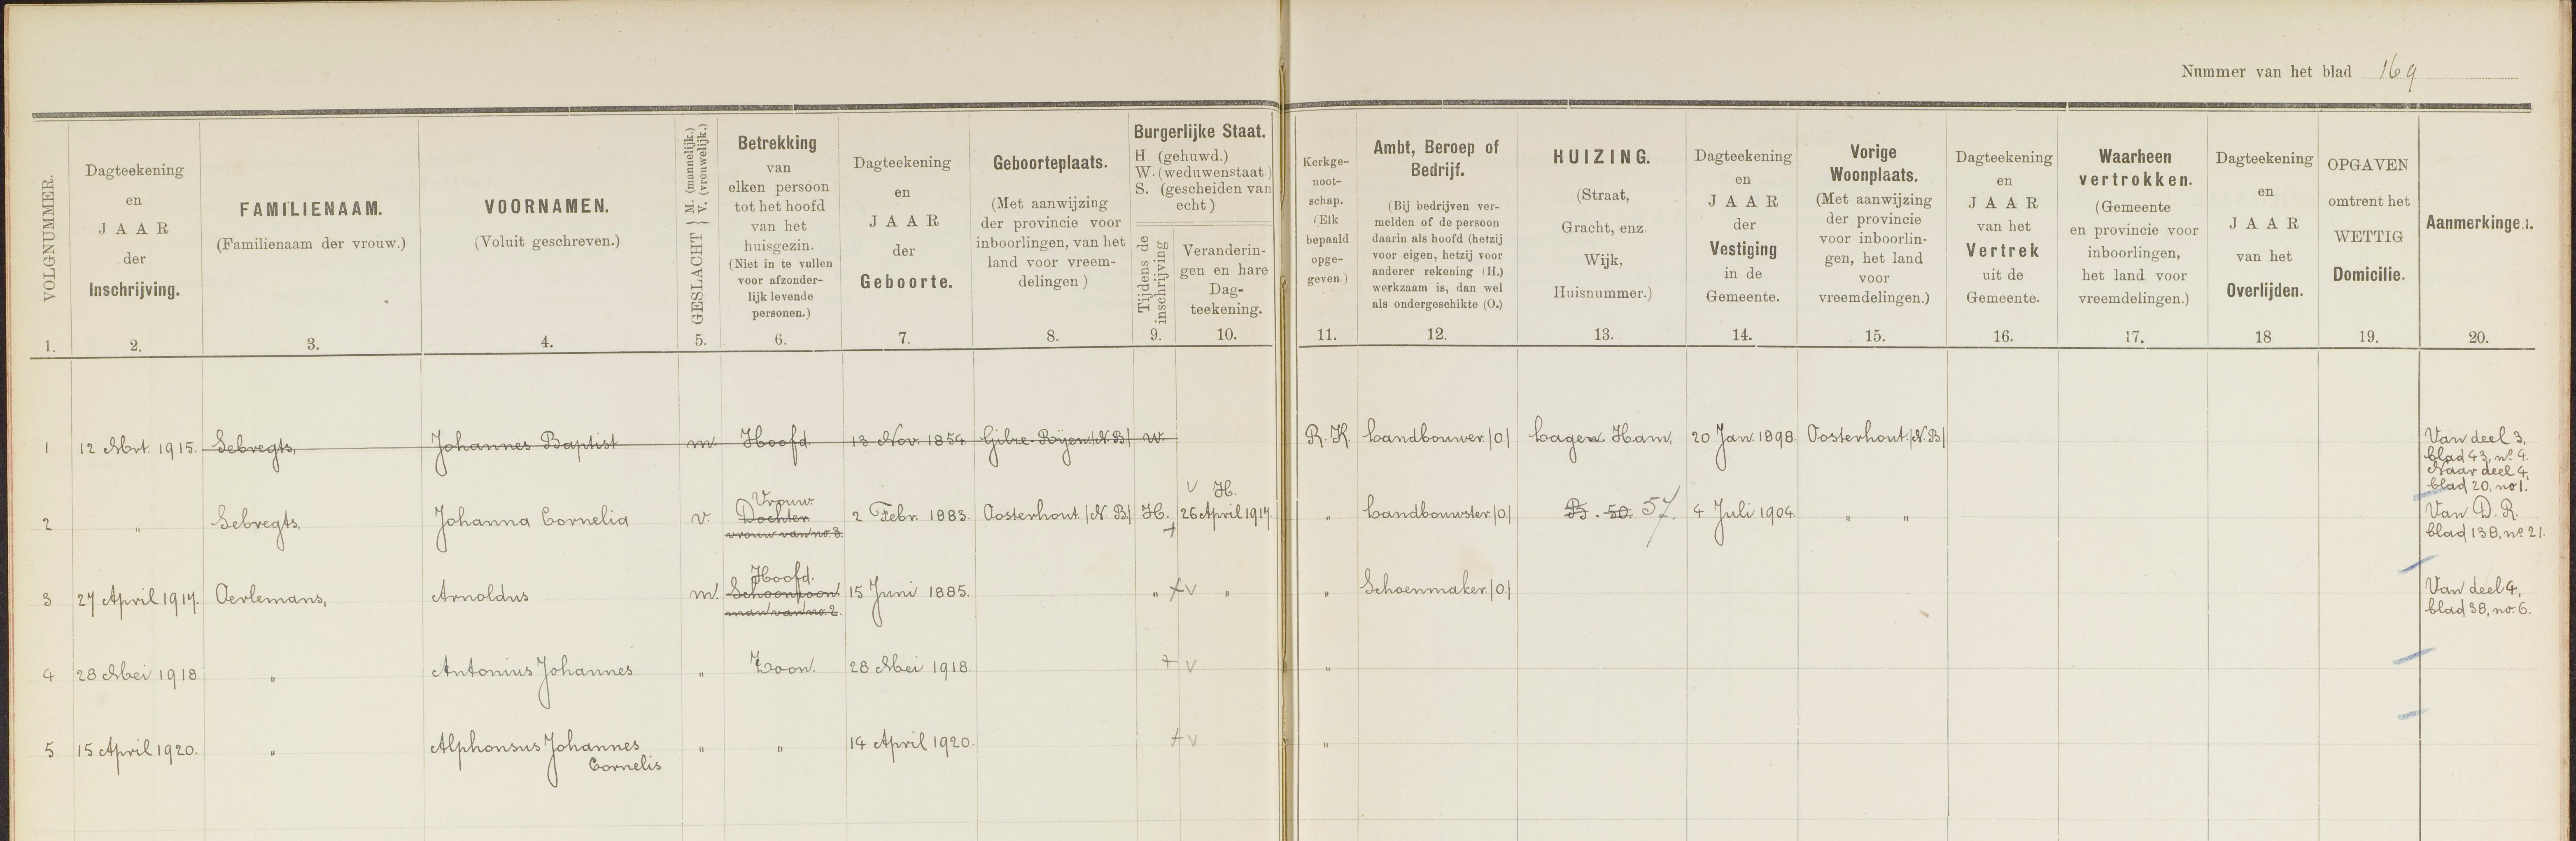 Nummer van het blad 169
VOLGNUMMER.
1.
Dagteekening
en
JAAR
der
Inschrijving.
2.
FAMILIENAAM.
(Familienaam der vrouw.)
3.
VOORNAMEN.
(Voluit geschreven.)
4.
GESLACHT { M. (mannelijk.)
V. (vrouwelijk.)
5.
Betrekking
van
elken persoon
tot het hoofd
van het
huisgezin.
(Niet in te vullen
voor afzonder-
lijk levende
personen.)
6.
Dagteekening
en
JAAR
der
Geboorte.
7.
Geboorteplaats.
(Met aanwijzing
der provincie voor
inboorlingen, van het
land voor vreem-
delingen)
8.
Burgerlijke Staat.
H (gehuwd.)
W. (weduwenstaat.)
S. (gescheiden van
echt)
Tijdens de
inschrijving
9.
Veranderin-
gen en hare
Dag-
teekening.
10.
Kerkge-
noot-
schap.
(Elk
bepaald
opge-
geven.)
11.
Ambt, Beroep of
Bedrijf.
(Bij bedrijven ver-
melden of de persoon
daarin als hoofd (hetzij
voor eigen, hetzij voor
anderer rekening (H.)
werkzaam is, dan wel
als ondergeschikte (O.)
12.
HUIZING.
(Straat,
Gracht, enz.
Wijk,
Huisnummer.)
13.
Dagteekening
en
JAAR
der
Vestiging
in de
Gemeente.
14.
Vorige
Woonplaats.
(Met aanwijzing
der provincie
voor inboorlin-
gen, het land
voor
vreemdelingen.)
15.
Dagteekening
en
JAAR
van het
Vertrek
uit de
Gemeente.
16.
Waarheen
vertrokken.
(Gemeente
en provincie voor
inboorlingen,
het land voor
vreemdelingen.)
17.
Dagteekening
en
JAAR
van het
Overlijden.
18
OPGAVEN
omtrent het
WETTIG
Domicilie.
19.
Aanmerkingen.
20.
1 12 Mrt. 1915. Sebregts, Johannes Baptist m. Hoofd 13 Nov. 1854 Gilze-Rijen (N.B) w. R. K. Landbouwer (O) Lagen Ham, 20 Jan. 1898. Oosterhout (N.B) Van deel 3,
blad 43, no. 4.
Naar deel 4,
blad 20, no 1.
Vrouw. V H.
2 " Sebregts, Johanna Cornelia v. Dochter 2 Febr. 1883. Oosterhout (N.B) H. 26 April 1917. " Landbouwster (O) B. 50. 57. 4 Juli 1904. " " Van D. R.
vrouw van no. 3. + blad 138, no 21.
Hoofd.
3 27 April 1917. Oerlemans, Arnoldus m. Schoonzoon 15 Juni 1885. " + v " " Schoenmaker (O) Van deel 4,
man van no. 2. blad 38, no. 6.
4 28 Mei 1918. " Antonius Johannes " Zoon. 28 Mei 1918. + v "
5 15 April 1920. " Alphonsus Johannes " " 14 April 1920. + v "
Cornelis